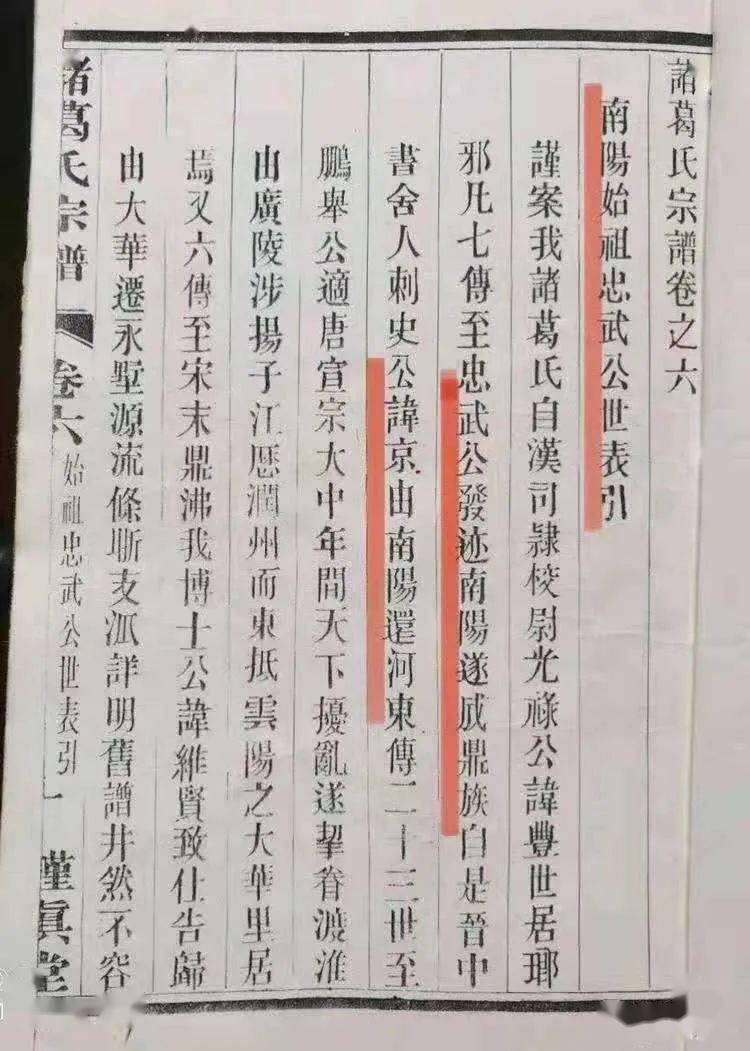 諸葛氏宗譜卷之六
南陽始祖忠武公世表引
謹案我諸葛氏自漢司隷校尉光祿公諱豐世居瑯
邪凡七傳至忠武公發迹南陽遂成鼎族自是晉中
書舍人刺史公諱京由南陽還河東傳二十三世至
鵬舉公適唐宣宗大中年間天下擾亂遂挈眷渡淮
由廣陵涉揚子江歷潤州而東抵雲陽之大華里居
焉又六傳至宋末鼎沸我博士公諱維賢致仕告歸
由大華遷永墅源流條晰支派詳明舊譜井然不容
諸葛氏宗譜 卷六 始祖忠武公世表引 一 瑾眞堂